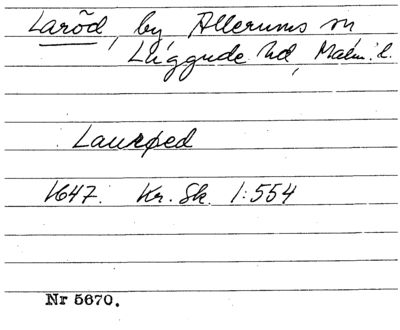 Laröd, by, Allerums sn
Luggude hd, Malm. l.
Laurøed
1647. Kr. Sk. 1:554
Nr 5670.